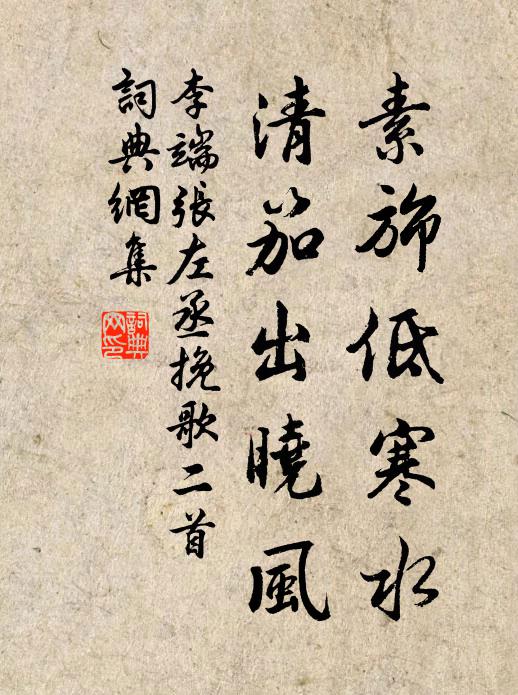 素旆低寒水
清笳出曉風
李端張左丞挽歌二首
詞典網集
詞典
网印